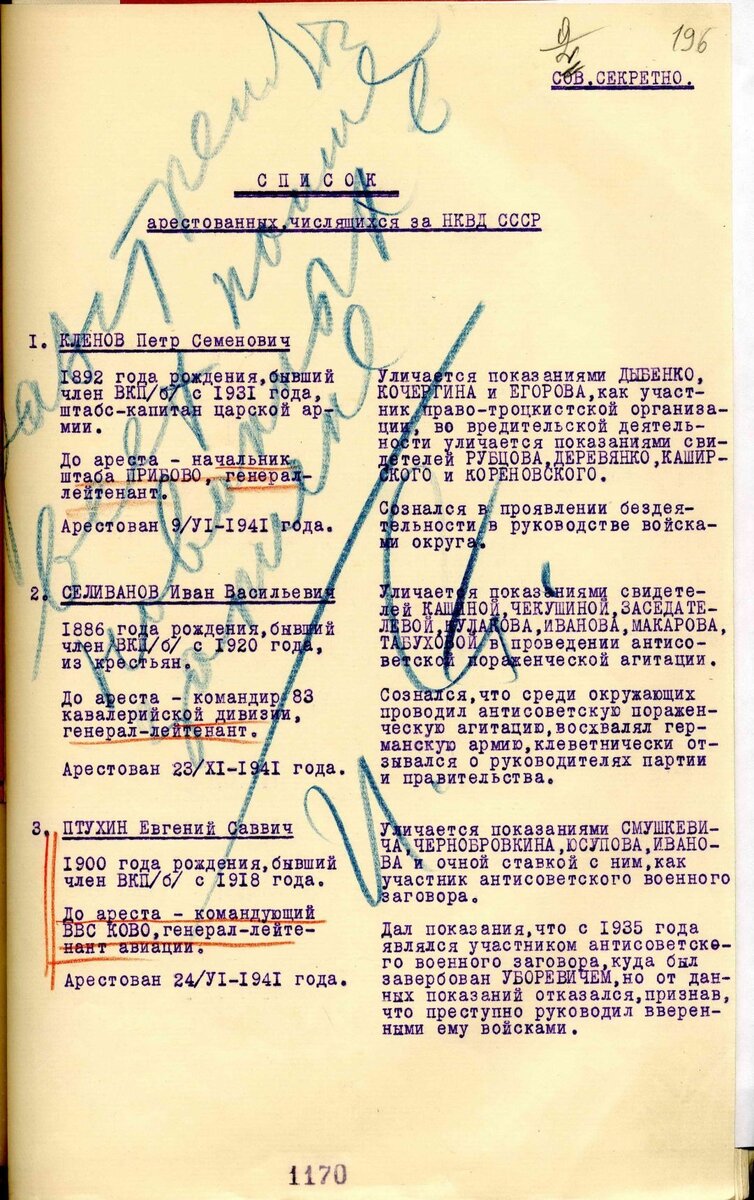 196
СОВ.СЕКРЕТНО.
СПИСОК
арестованных,числящихся за НКВД СССР
1. КЛЕНОВ Петр Семенович
1892 года рождения,бывший
член ВКП/б/ с 1931 года,
штабс-капитан царской ар-
мии.
До ареста - начальник
штаба ПРИБОВО, генерал-
лейтенант.
Арестован 9/VI-1941 года.
Уличается показаниями ДЫБЕНКО,
КОЧЕРГИНА и ЕГОРОВА,как участ-
ник право-троцкистской организа-
ции, во вредительской деятель-
ности уличается показаниями сви-
детелей РУБЦОВА,ДЕРЕВЯНКО,КАШИР-
СКОГО и КОРЕНОВСКОГО.
Сознался в проявлении бездея-
тельности в руководстве войска-
ми округа.
2. СЕЛИВАНОВ Иван Васильевич
1886 года рождения,бывший
член ВКП/б/ с 1920 года,
из крестьян.
До ареста - командир 83
кавалерийской дивизии,
генерал-лейтенант.
Арестован 23/XI-1941 года.
Уличается показаниями свидете-
лей КАШИНОЙ,ЧЕКУШИНОЙ,ЗАСЕДАТЕ-
ЛЕВОЙ,БУЛАКОВА,ИВАНОВА,МАКАРОВА,
ТАБУХОВОЙ в проведении антисо-
ветской пораженческой агитации.
Сознался,что среди окружающих
проводил антисоветскую поражен-
ческую агитацию,восхвалял гер-
манскую армию,клеветнически от-
зывался о руководителях партии
и правительства.
3. ПТУХИН Евгений Саввич
1900 года рождения,бывший
член ВКП/б/ с 1918 года.
До ареста - командующий
ВВС КОВО,генерал-лейте-
нант авиации.
Арестован 24/VI-1941 года.
Уличается показаниями СМУШКЕВИ-
ЧА,ЧЕРНОБРОВКИНА,ЮСУПОВА,ИВАНО-
ВА и очной ставкой с ним,как
участник антисоветского военного
заговора.
Дал показания,что с 1935 года
являлся участником антисоветско-
го военного заговора,куда был
завербован УБОРЕВИЧЕМ,но от дан-
ных показаний отказался,признав,
что преступно руководил вверен-
ными ему войсками.
Расстрелять
всех поиме
нованных в
записке
И. Ст.
1170